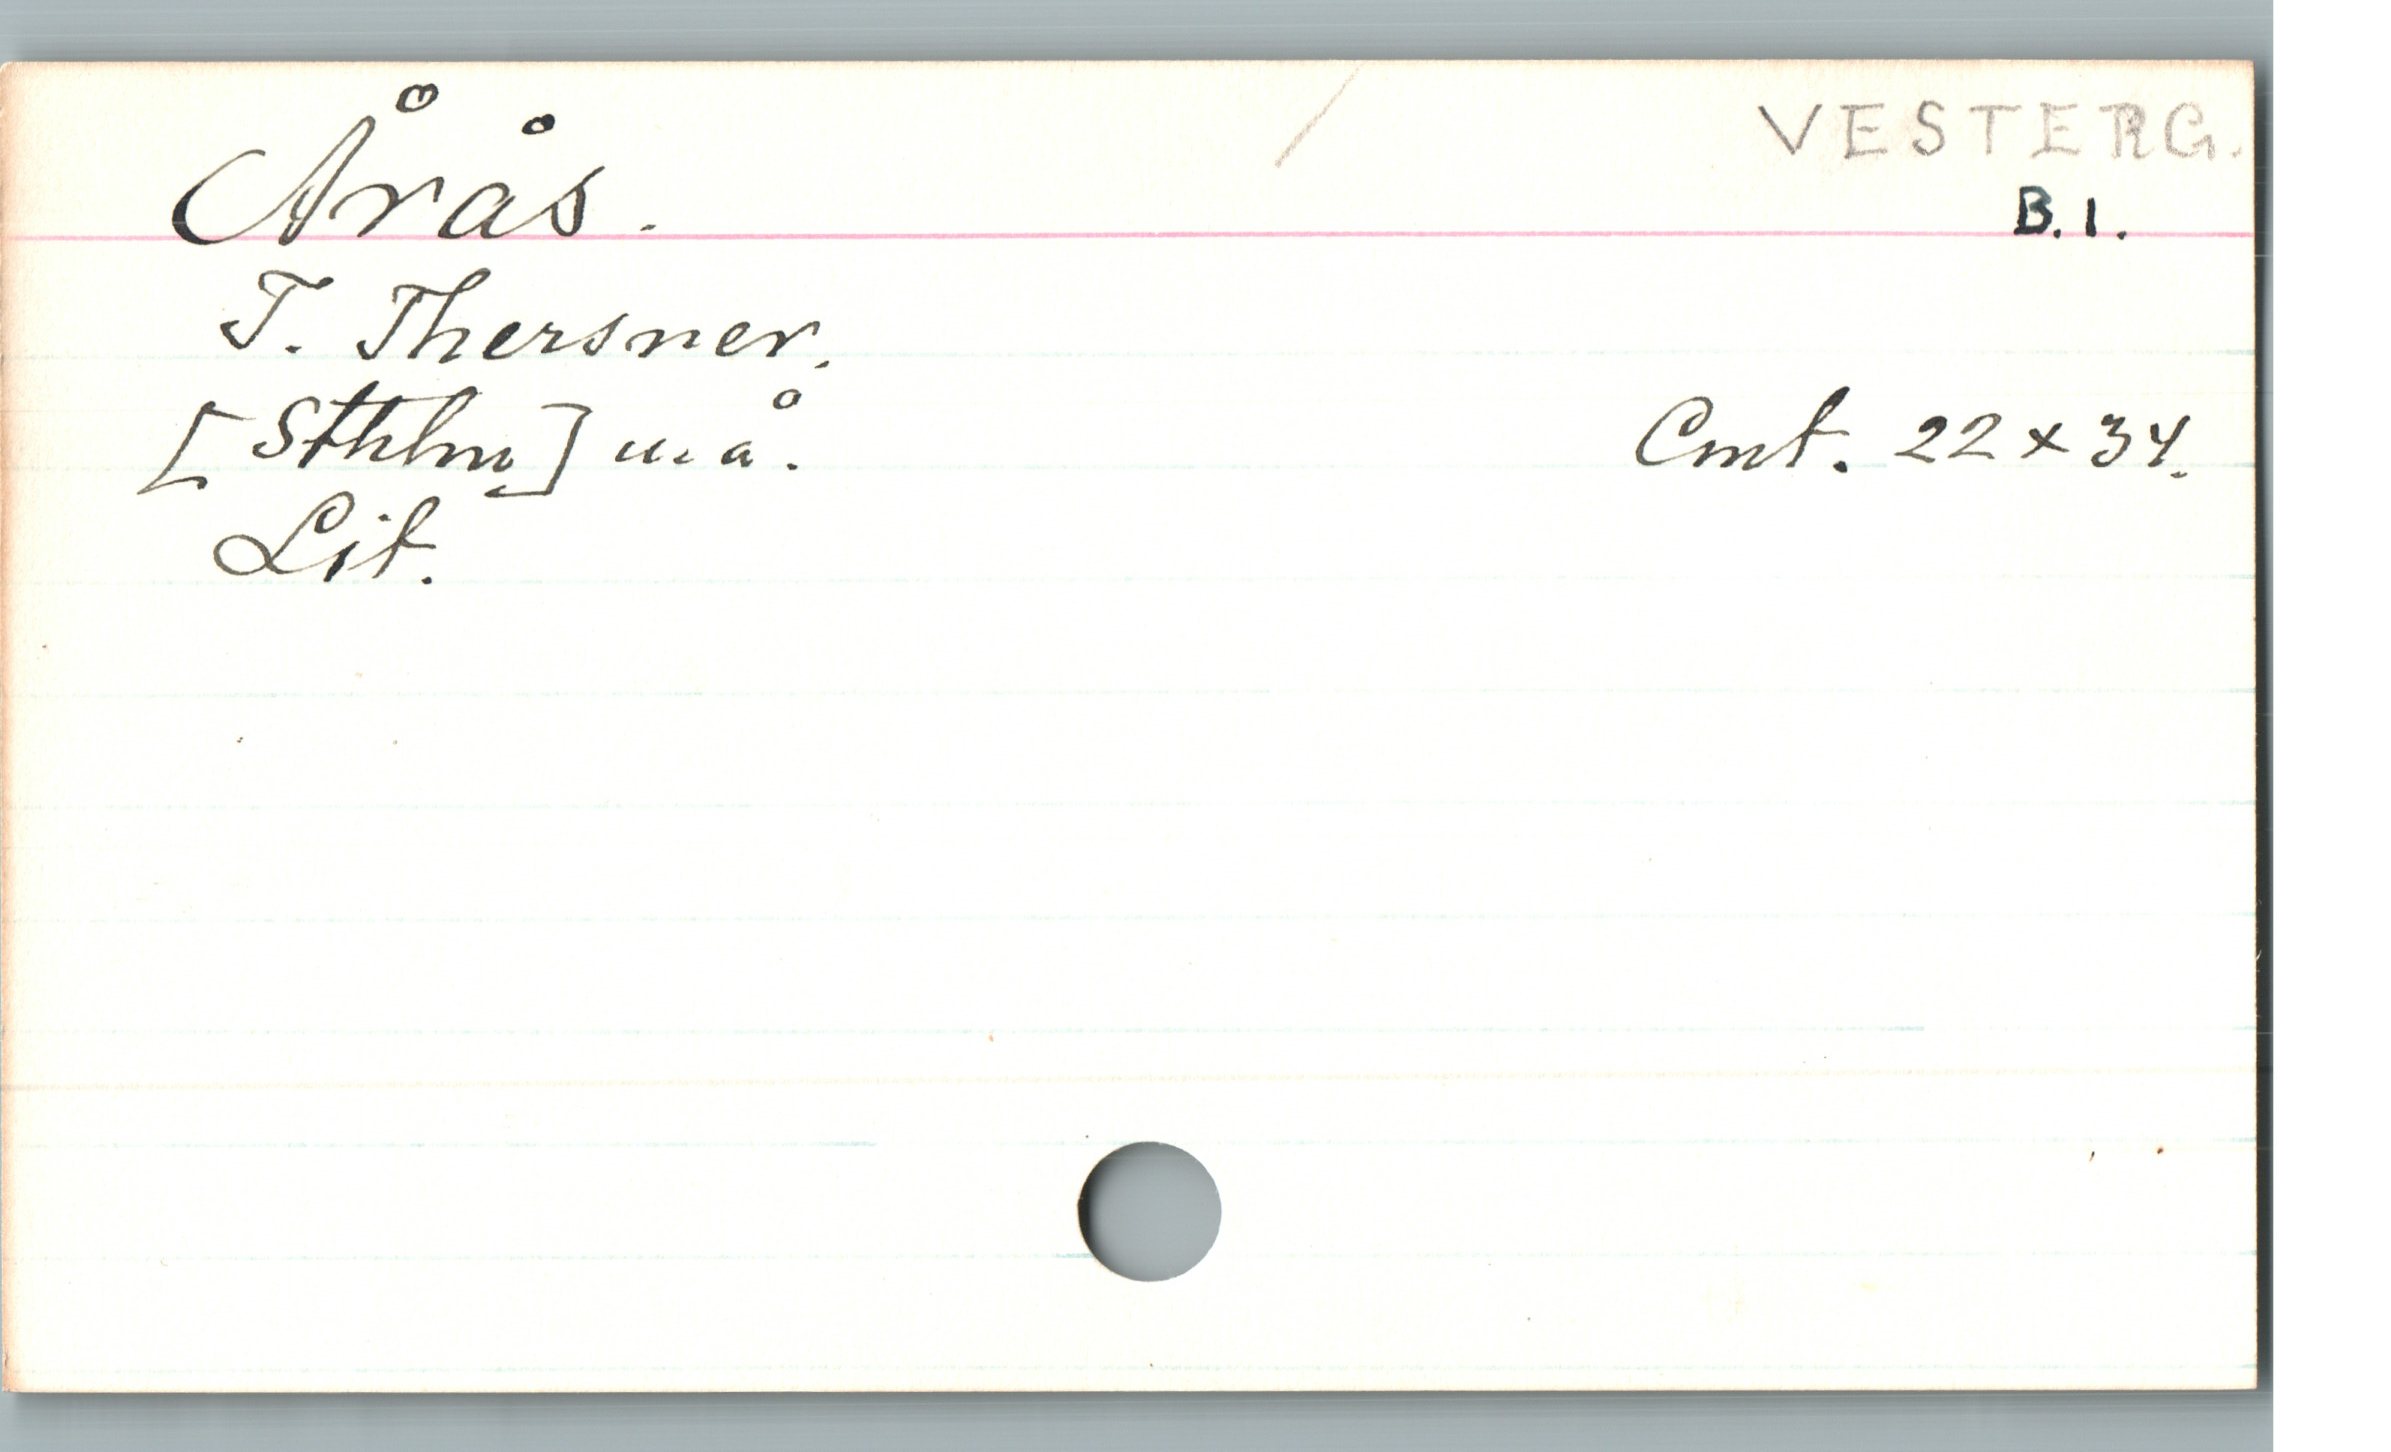 Årås. / VESTERG.
B. 1.
T. Thersner.
[Sthlm] u. å. Cmt. 22 x 34.
Lit.